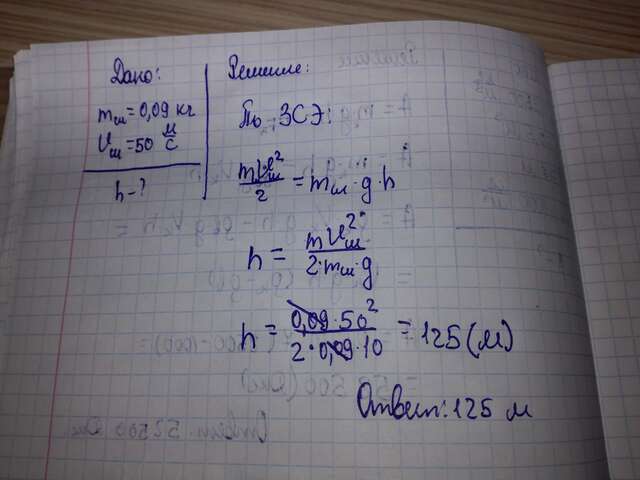 Дано:
m_ш = 0,09 кг
v_ш = 50 м/с
h - ?
Решение:
По ЗСЭ:
mv_ш²/2 = m_ш · g · h
h = mv_ш²/2·m_ш·g
h = 0,09·50²/2·0,09·10 = 125 (м)
Ответ: 125 м